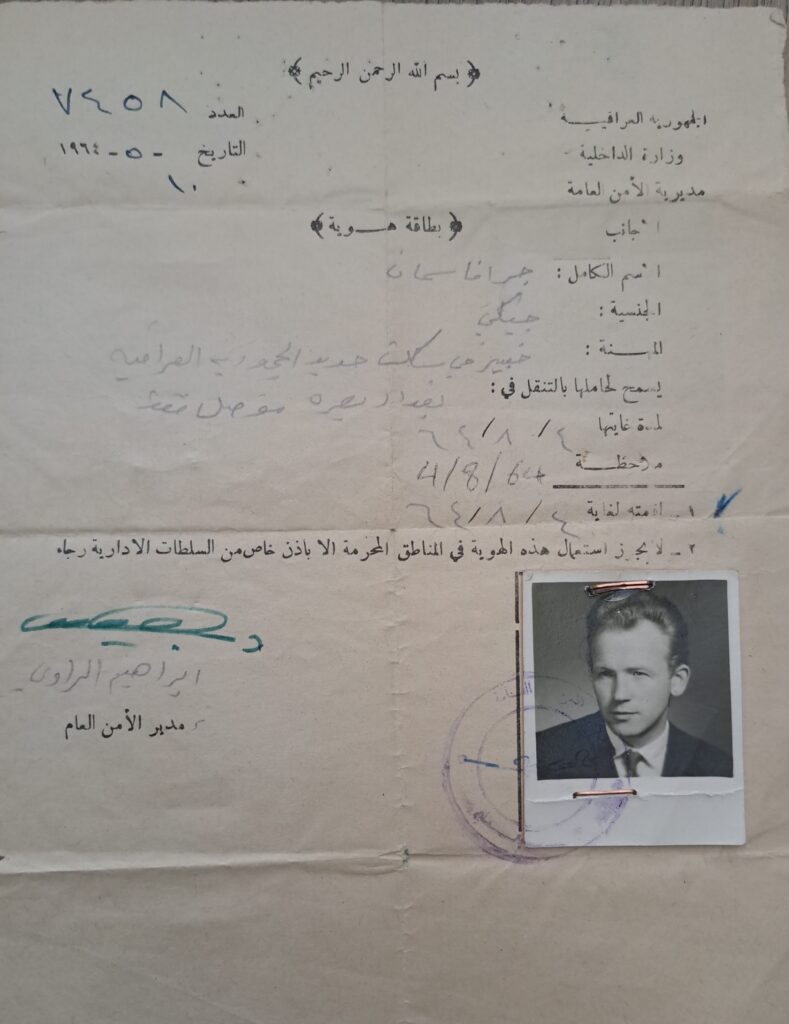 ﴿ بسم الله الرحمن الرحيم ﴾
الجمهورية العراقيـــة
العدد ٧٤٥٨
وزارة الداخلية
التاريخ ١٠ - ٥ - ١٩٦٤
مديرية الأمن العامة
الاجانب
﴿ بطاقة هـــوية ﴾
الاسم الكامل :
الجنسية : جيكي
المهـــنة : خبير في سكك حديد الجمهورية العراقية
يسمح لحاملها بالتنقل في : بغداد بصرة موصل فقط
لمدة غايتها ٤ / ٨ / ٦٤
ملاحظـــة 4/8/64
١ ـ اقامته لغاية ٤ / ٨ / ٦٤
٢ ـ لا يجوز استعمال هذه الهوية في المناطق المحرمة الا باذن خاص من السلطات الادارية رجاء
ابراهيم الراوي
مدير الأمن العام